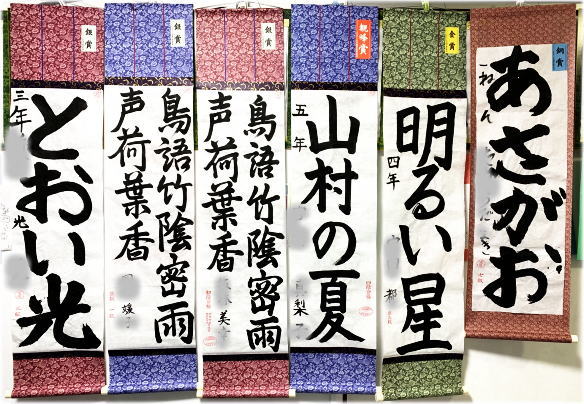 銅賞
あさがお
一ねん
金賞
明るい星
四年
都
山村の夏
五年
梨
銀賞
鳥語竹陰密雨
声荷葉香
美
銀賞
鳥語竹陰密雨
声荷葉香
媛
銀賞
とおい光
三年
光